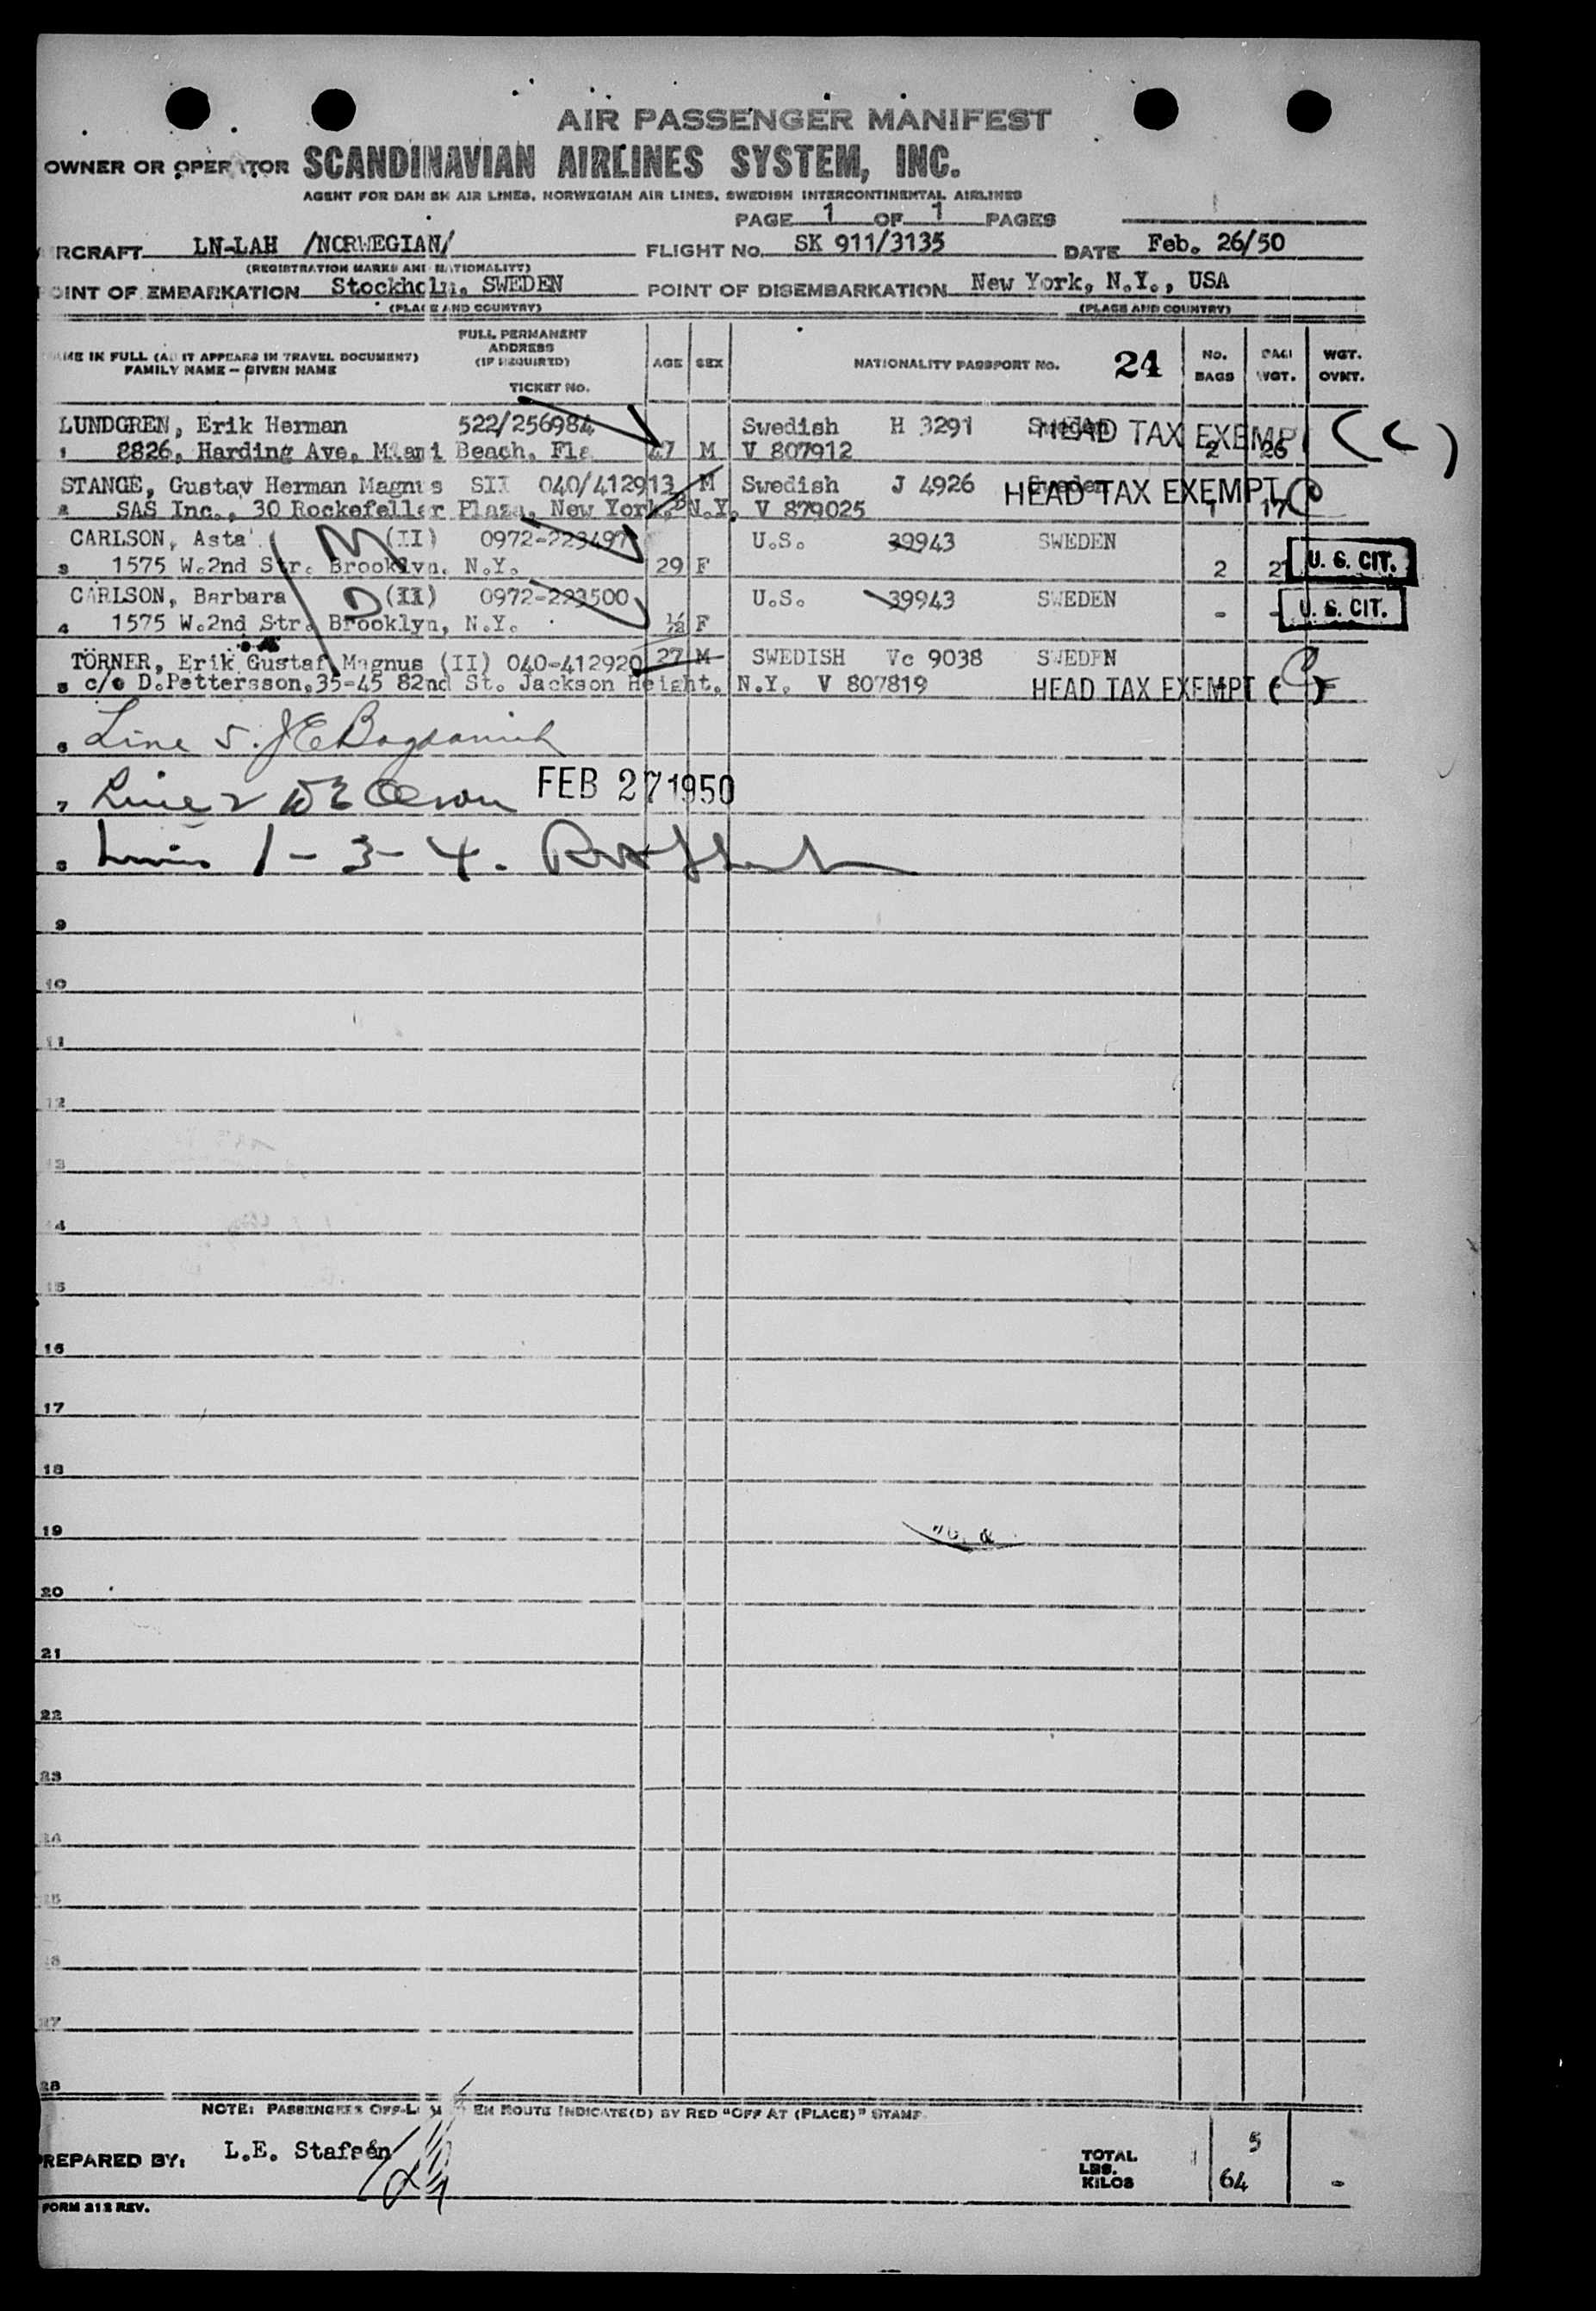 AIR PASSENGER MANIFEST
OWNER OR OPERATOR SCANDINAVIAN AIRLINES SYSTEM, INC.
AGENT FOR DANISH AIR LINES, NORWEGIAN AIR LINES, SWEDISH INTERCONTINENTAL AIRLINES
PAGE 1 OF 1 PAGES
IRCRAFT LN-LAH /NORWEGIAN/ FLIGHT NO. SK 911/3135 DATE Feb. 26/50
(REGISTRATION MARKS AND NATIONALITY)
POINT OF EMBARKATION Stockholm, SWEDEN POINT OF DISEMBARKATION New York, N.Y., USA
(PLACE AND COUNTRY) (PLACE AND COUNTRY)
NAME IN FULL (AS IT APPEARS IN TRAVEL DOCUMENT)
FAMILY NAME - GIVEN NAME
FULL PERMANENT
ADDRESS
(IF REQUIRED)
TICKET NO.
AGE SEX NATIONALITY PASSPORT NO. 24 NO. BAGS WGT. WGT. OVWT.
LUNDGREN, Erik Herman 522/256984 Swedish H 3291 Sweden HEAD TAX EXEMPT (C)
1 8826, Harding Ave, Miami Beach, Fla 47 M V 807912 2 26
STANGE, Gustav Herman Magnus SII 040/412913 M Swedish J 4926 Sweden HEAD TAX EXEMPT C
2 SAS Inc., 30 Rockefeller Plaza, New York, N.Y. V 879025 1 17
CARLSON, Asta (II) 0972-223497 U.S. 39943 SWEDEN
3 1575 W.2nd Str. Brooklyn, N.Y. 29 F 2 U. S. CIT.
CARLSON, Barbara (II) 0972-223500 U.S. 39943 SWEDEN
4 1575 W.2nd Str. Brooklyn, N.Y. ½ F - - U. S. CIT.
TÖRNER, Erik Gustaf Magnus (II) 040-412920 27 M SWEDISH Vc 9038 SWEDEN
5 c/o D.Pettersson,35-45 82nd St. Jackson Height, N.Y. V 807819 HEAD TAX EXEMPT (C)
6 Line 5.
7 Line 2 FEB 27 1950
8 Lines 1 - 3 - 4.
9
10
11
12
13
14
15
16
17
18
19
20
21
22
23
24
25
26
27
28
NOTE: PASSENGERS OFF-LOADED EN ROUTE INDICATE(D) BY RED "OFF AT (PLACE)" STAMP
PREPARED BY: L.E. Stafsén
TOTAL 5
LBS.
KILOS 64 -
FORM 212 REV.